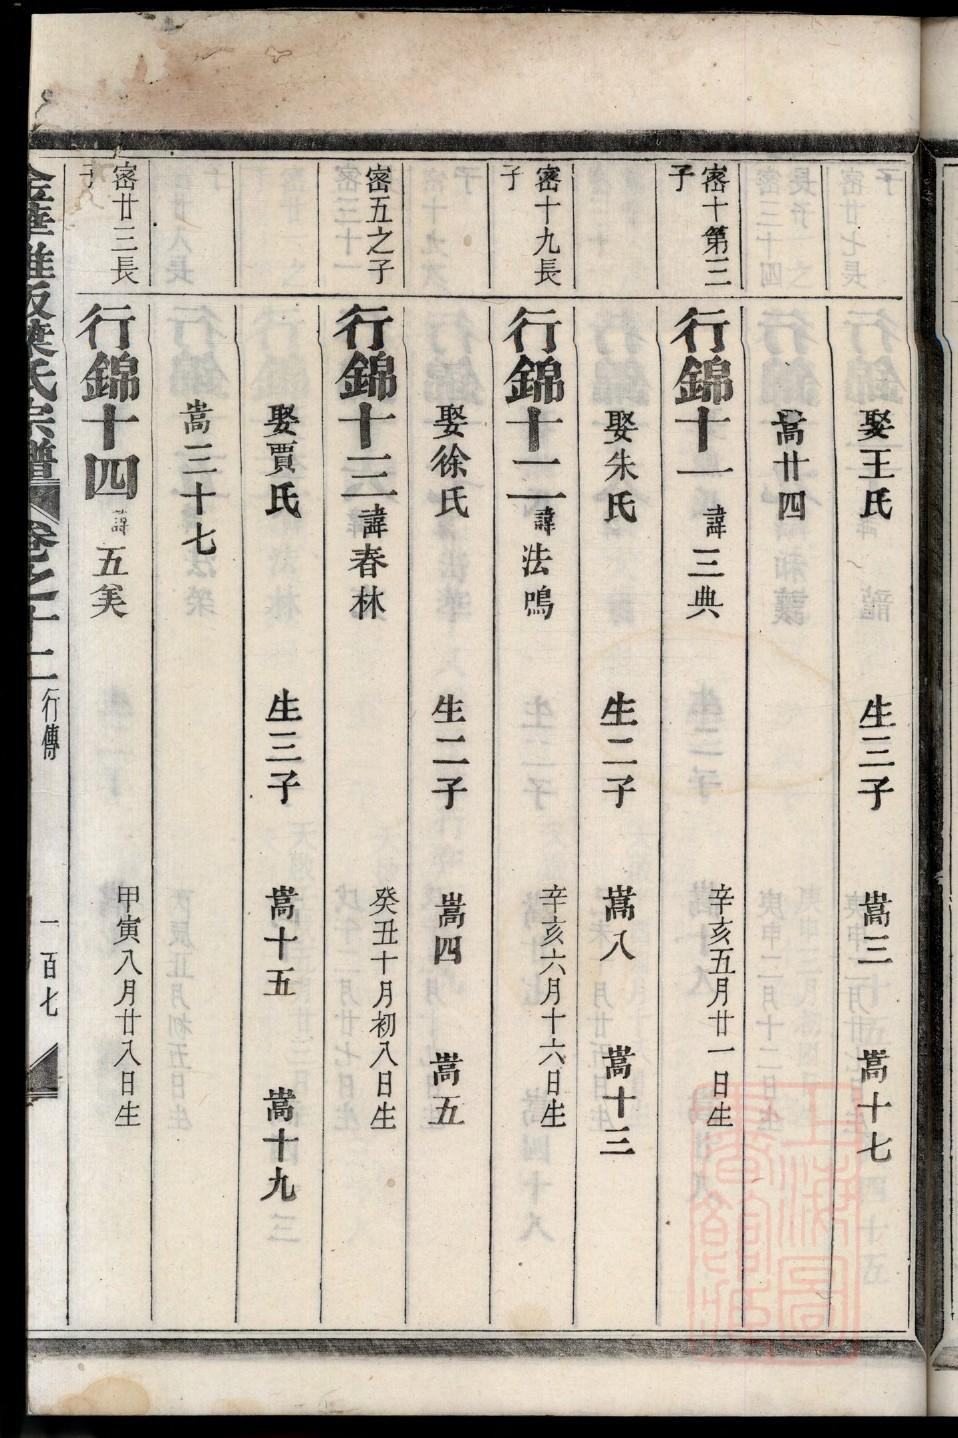 娶王氏 生三子 嵩三 嵩十七
嵩廿四
密十第三子
行錦十一 諱三典 辛亥五月廿一日生
娶朱氏 生二子 嵩八 嵩十三
密十九長子
行錦十二 諱法鳴 辛亥六月十六日生
娶徐氏 生二子 嵩四 嵩五
密五之子
行錦十三 諱春林 癸丑十月初八日生
娶賈氏 生三子 嵩十五 嵩十九
嵩三十七
密廿三長子
行錦十四 諱五 甲寅八月廿八日生
氏宗譜 卷之十二 行傳 一百七